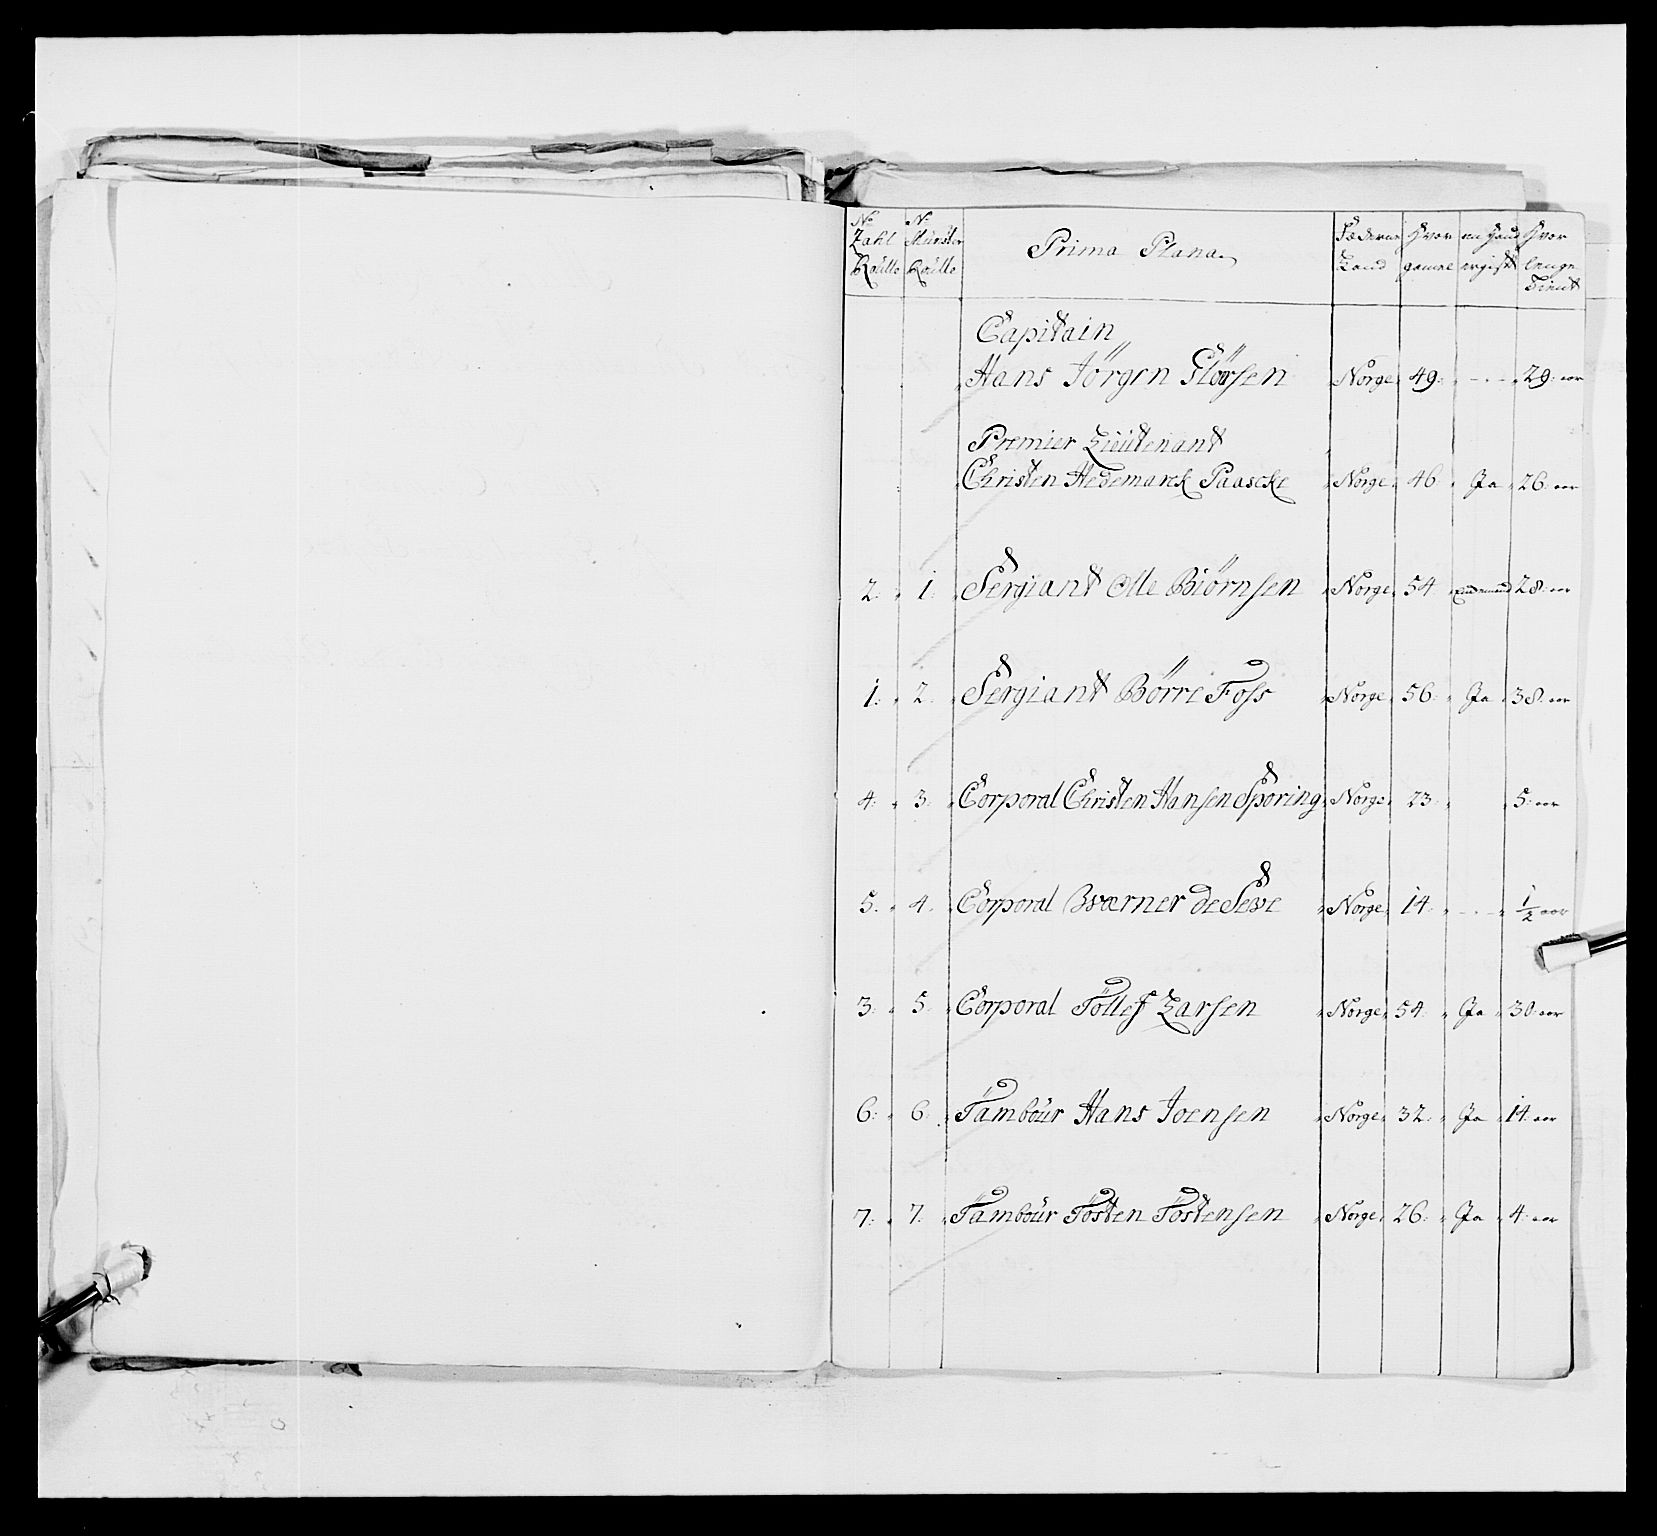 No Zahl Roulle | No Munster Roulle | Prima Plana. | Fæderne Land | Hvor gamel | | Hvor lenge Tient
Capitain
Hans Jörgen Flörsen | Norge | 49: | - . - | 29: aar
Premier Lieutenant
Christen Hedemarck Paascke | Norge | 46 | Ja | 26: aar
2: | 1: | Sergiant Olle Biörnsen | Norge | 54 | Enckemand | 28: aar
1: | 2. | Sergiant Börre Foss | Norge | 56: | Ja | 38: aar
4: | 3: | Corporal Christen Hansen Sporing | Norge | 23: | | 5: aar
5. | 4. | Corporal Bværner de Seve | Norge | 14: | - . - | 1/2 aar
3: | 5: | Corporal Töllef Larsen | Norge | 54: | Ja | 30: aar
6: | 6: | Tambour Hans Joensen | Norge | 32: | Ja | 14: aar
7: | 7: | Tambour Tösten Töstensen | Norge | 26: | Ja | 4: aar